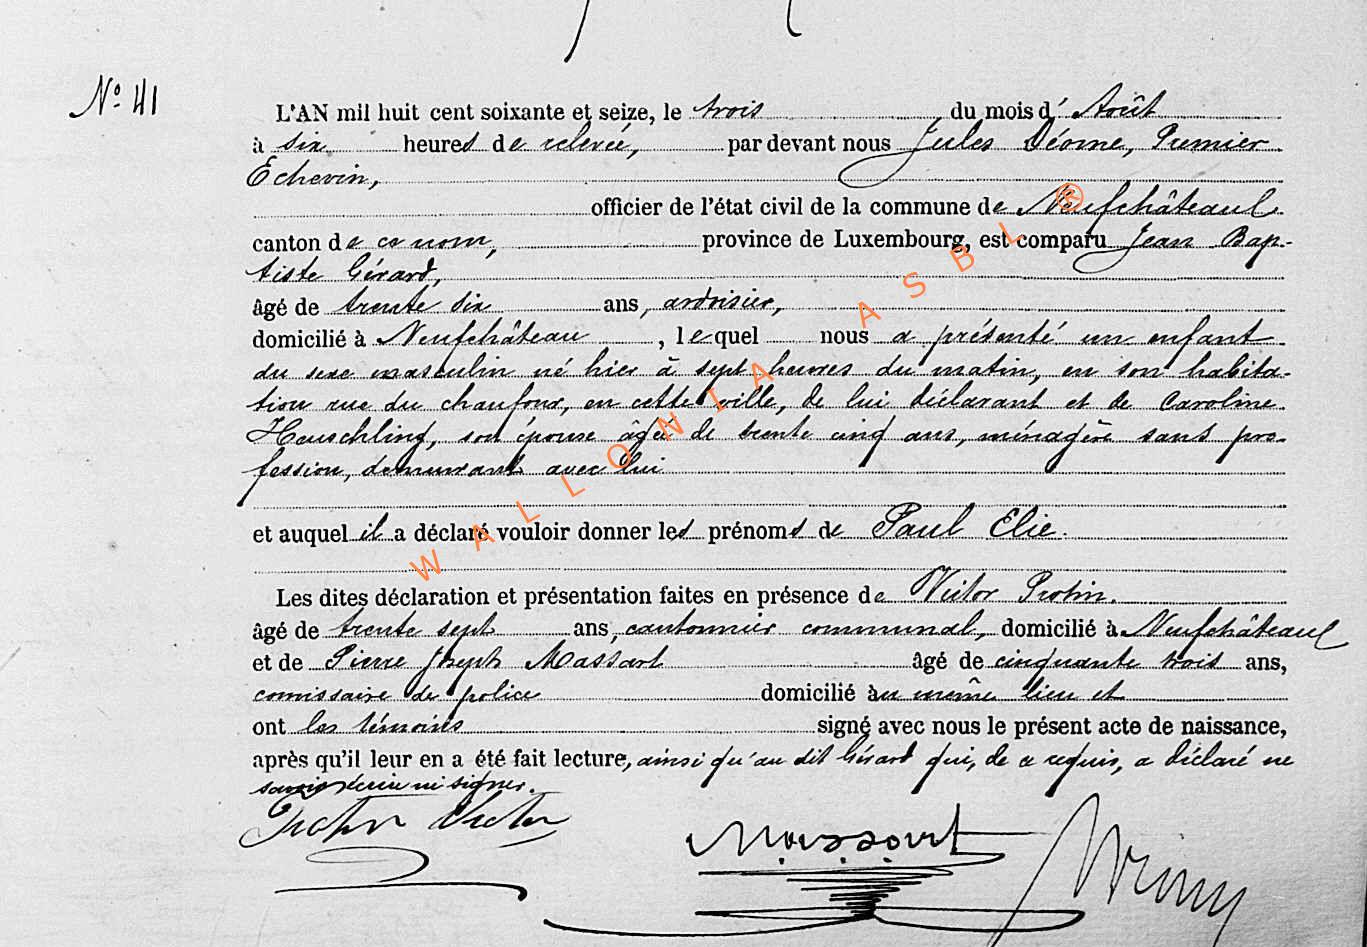 N° 41
L'AN mil huit cent soixante et seize, le trois du mois d' Août
à six heures de relevée, par devant nous Jules Déome, Premier
Echevin,
officier de l'état civil de la commune de Neufchâteau
canton de ce nom, province de Luxembourg, est comparu Jean Bap-
tiste Gérard,
âgé de trente six ans, ardoisier,
domicilié à Neufchâteau, lequel nous a présenté un enfant
du sexe masculin né hier à sept heures du matin, en son habita-
tion rue du chaufour, en cette ville, de lui déclarant et de Caroline
Hauschling, son épouse âgée de trente cinq ans, ménagère sans pro-
fession, demeurant avec lui
et auquel il a déclaré vouloir donner les prénoms de Paul Elie.
Les dites déclaration et présentation faites en présence de Victor Protin.
âgé de trente sept ans, cantonnier communal, domicilié à Neufchâteau
et de Pierre Joseph Massart âgé de cinquante trois ans,
comissaire de police domicilié au même lieu et
ont les témoins signé avec nous le présent acte de naissance,
après qu'il leur en a été fait lecture, ainsi qu'au dit Gérard qui, de ce requis, a déclaré ne
savoir écrire ni signer.
Protin Victor
Massart
WALLONIA ASBL ®